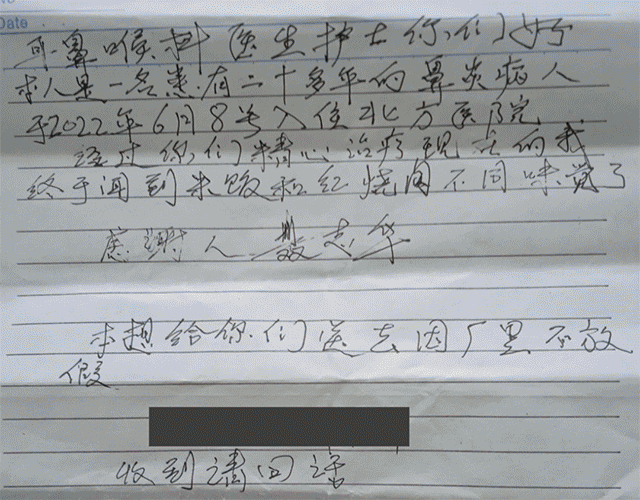 Date
耳鼻喉科医生护士你们好
本人是一名患有二十多年的鼻炎病人
于2022年6月8号入住北方医院
经过你们精心治疗现在的我
终于闻到米饭和红烧肉不同味觉了
感谢人 志华
本想给你们送去因厂里不放
假
收到请回话